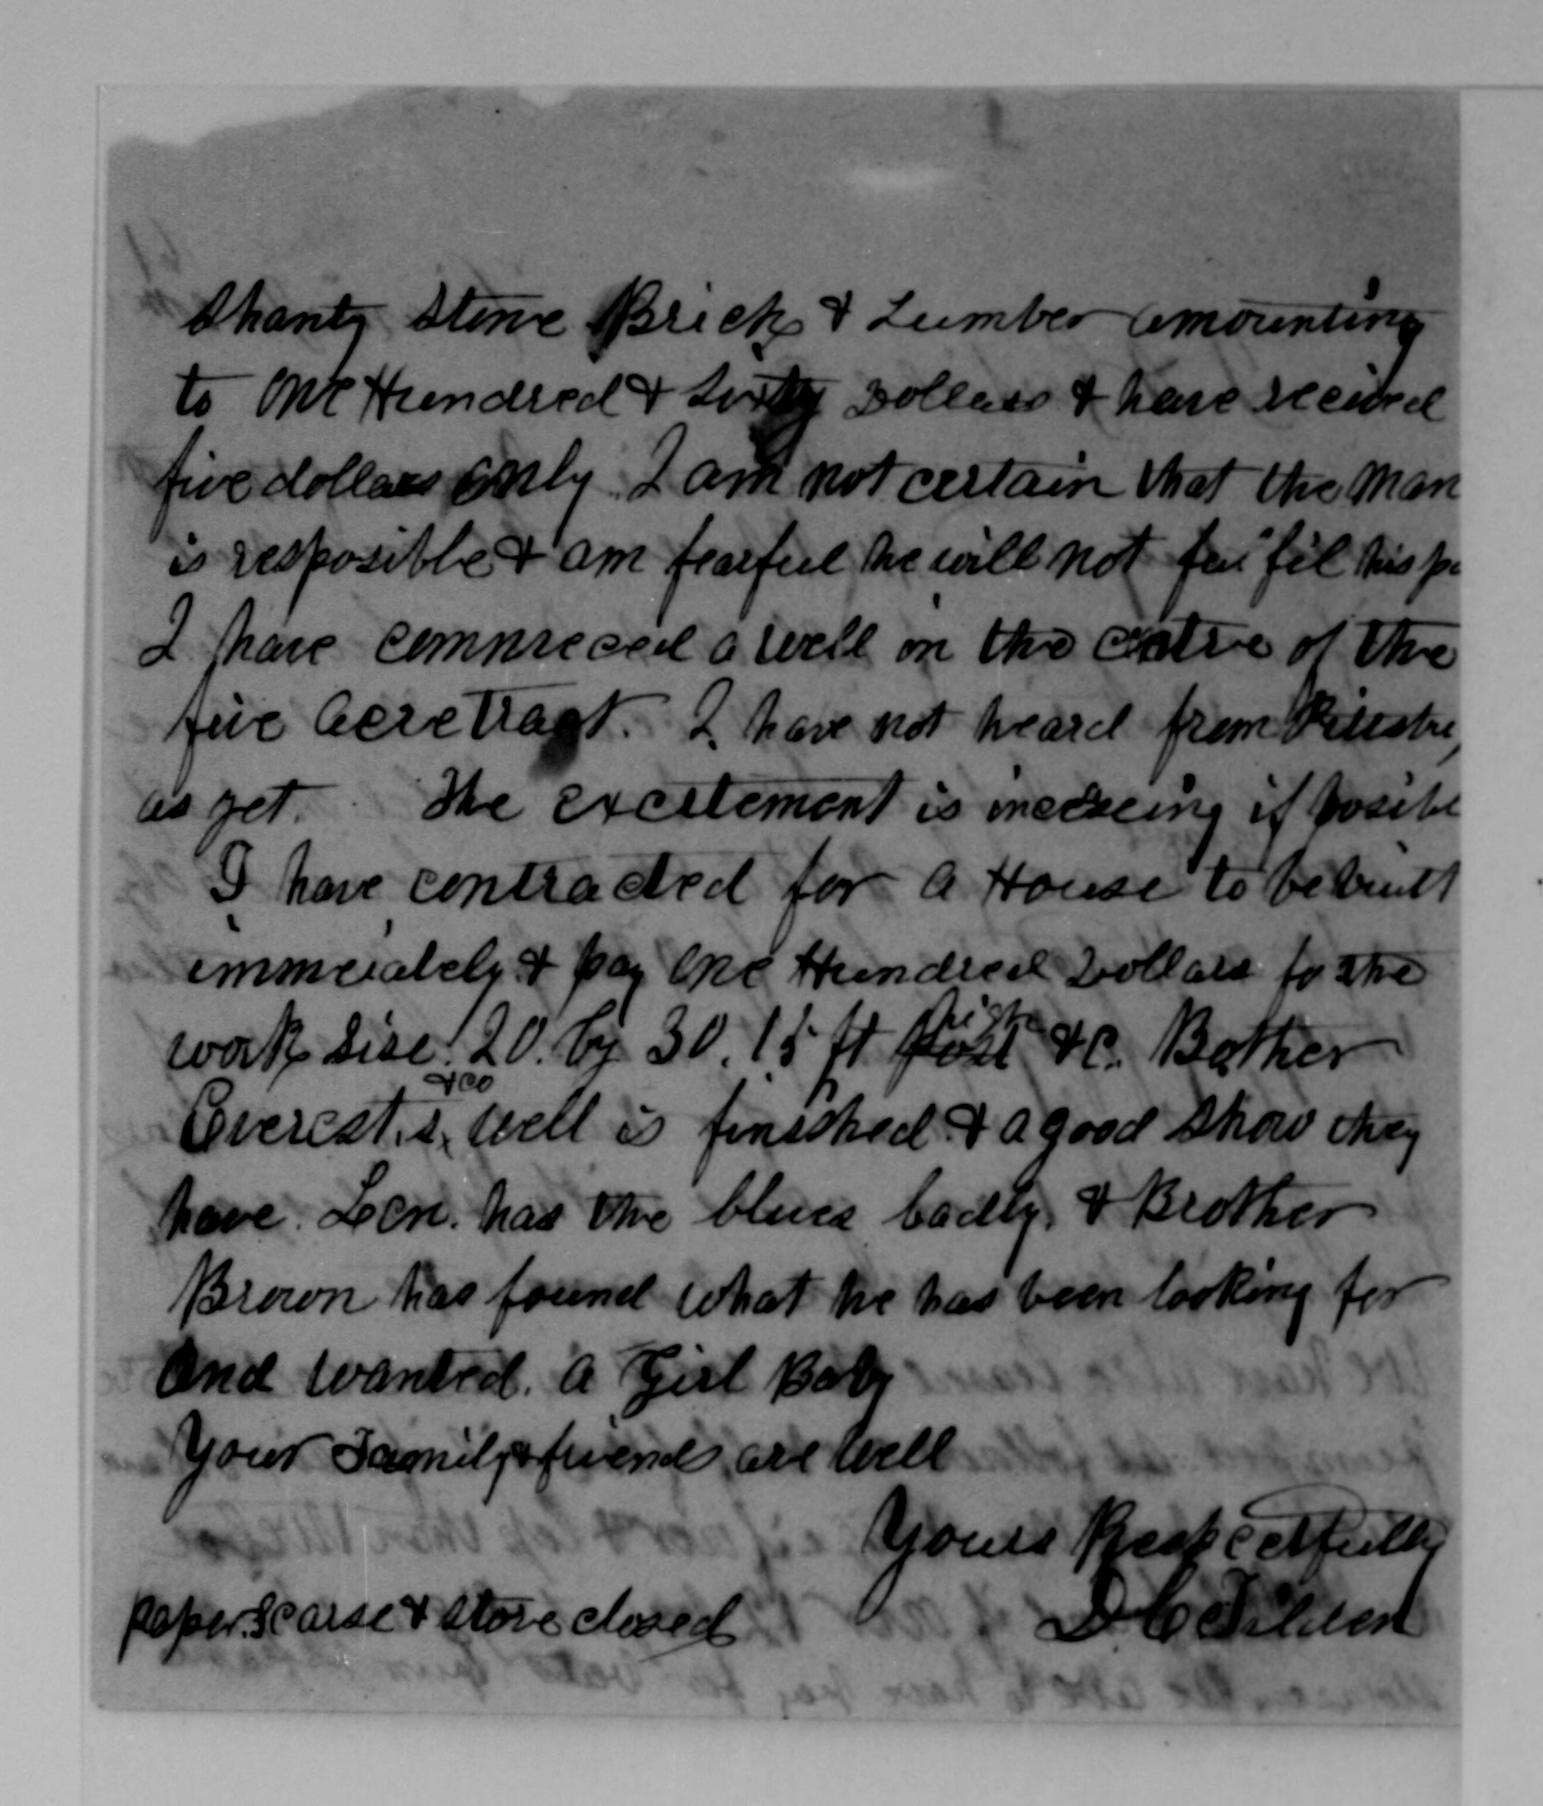 Shanty Stone Brick & Lumber amounting
to One Hundred & Sixty Dollars & have recived
five dollars only. I am not certain that the man
is resposible & am fearful he will not fulfil his
I have commreced a well in the centre of the
five acre tract. I have not heard from
as yet. The excitement is increseing if posibl
I have contracted for a House to be built
immeiately & pay One Hundred Dollars for the
work sise 20. by 30. 15 ft high &c. Bother
Everest.s. &co well is finished & a good show they
have. Len. has the blues badly. & Brother
Brown has found what he has been looking for
and wanted. a Girl Baby
Your Family & friends are well
Yours Respectfully
D C Tilden
paper scarse & store closed